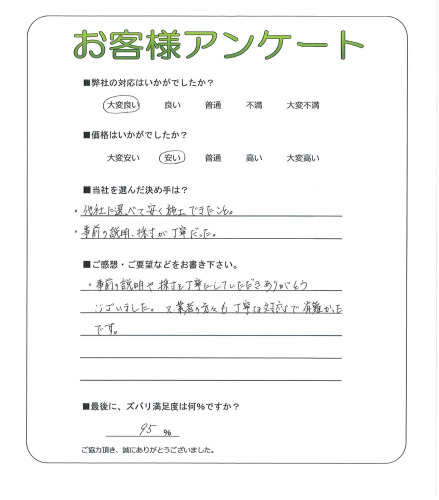 お客様アンケート
■弊社の対応はいかがでしたか？
大変良い 良い 普通 不満 大変不満
■価格はいかがでしたか？
大変安い 安い 普通 高い 大変高い
■当社を選んだ決め手は？
・他社に選べて安く施工できたこと。
・事前の説明、採寸が丁寧だった。
■ご感想・ご要望などをお書き下さい。
・事前の説明や採寸も丁寧にしていただきありがとう
ございました。又業者の方々も丁寧な対応で有難かった
です。
■最後に、ズバリ満足度は何%ですか？
95 %
ご協力頂き、誠にありがとうございました。